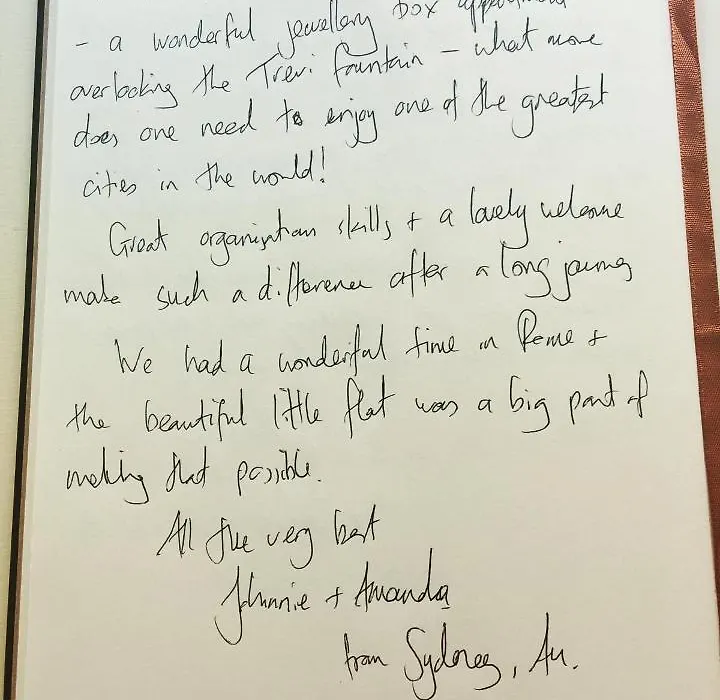 - a wonderful jewellery box appartment
overlooking the Trevi fountain - what more
does one need to enjoy one of the greatest
cities in the world!
Great organisation skills + a lovely welcome
make such a difference after a long journey
We had a wonderful time in Rome +
the beautiful little flat was a big part of
making that possible.
All the very best
Johnnie + Amanda
from Sydney, Au.